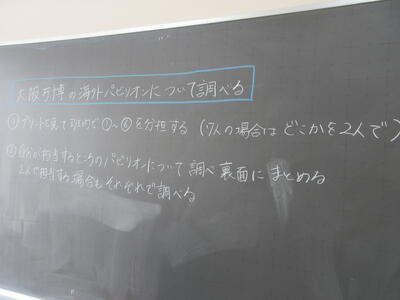 大阪万博の海外パビリオンについて調べる
① プリントを見て班内で①~⑥を分担する (7人の場合はどこかを2人で)
② 自分が担当するところのパビリオンについて調べ裏面にまとめる
2人で担当する場合もそれぞれで調べる